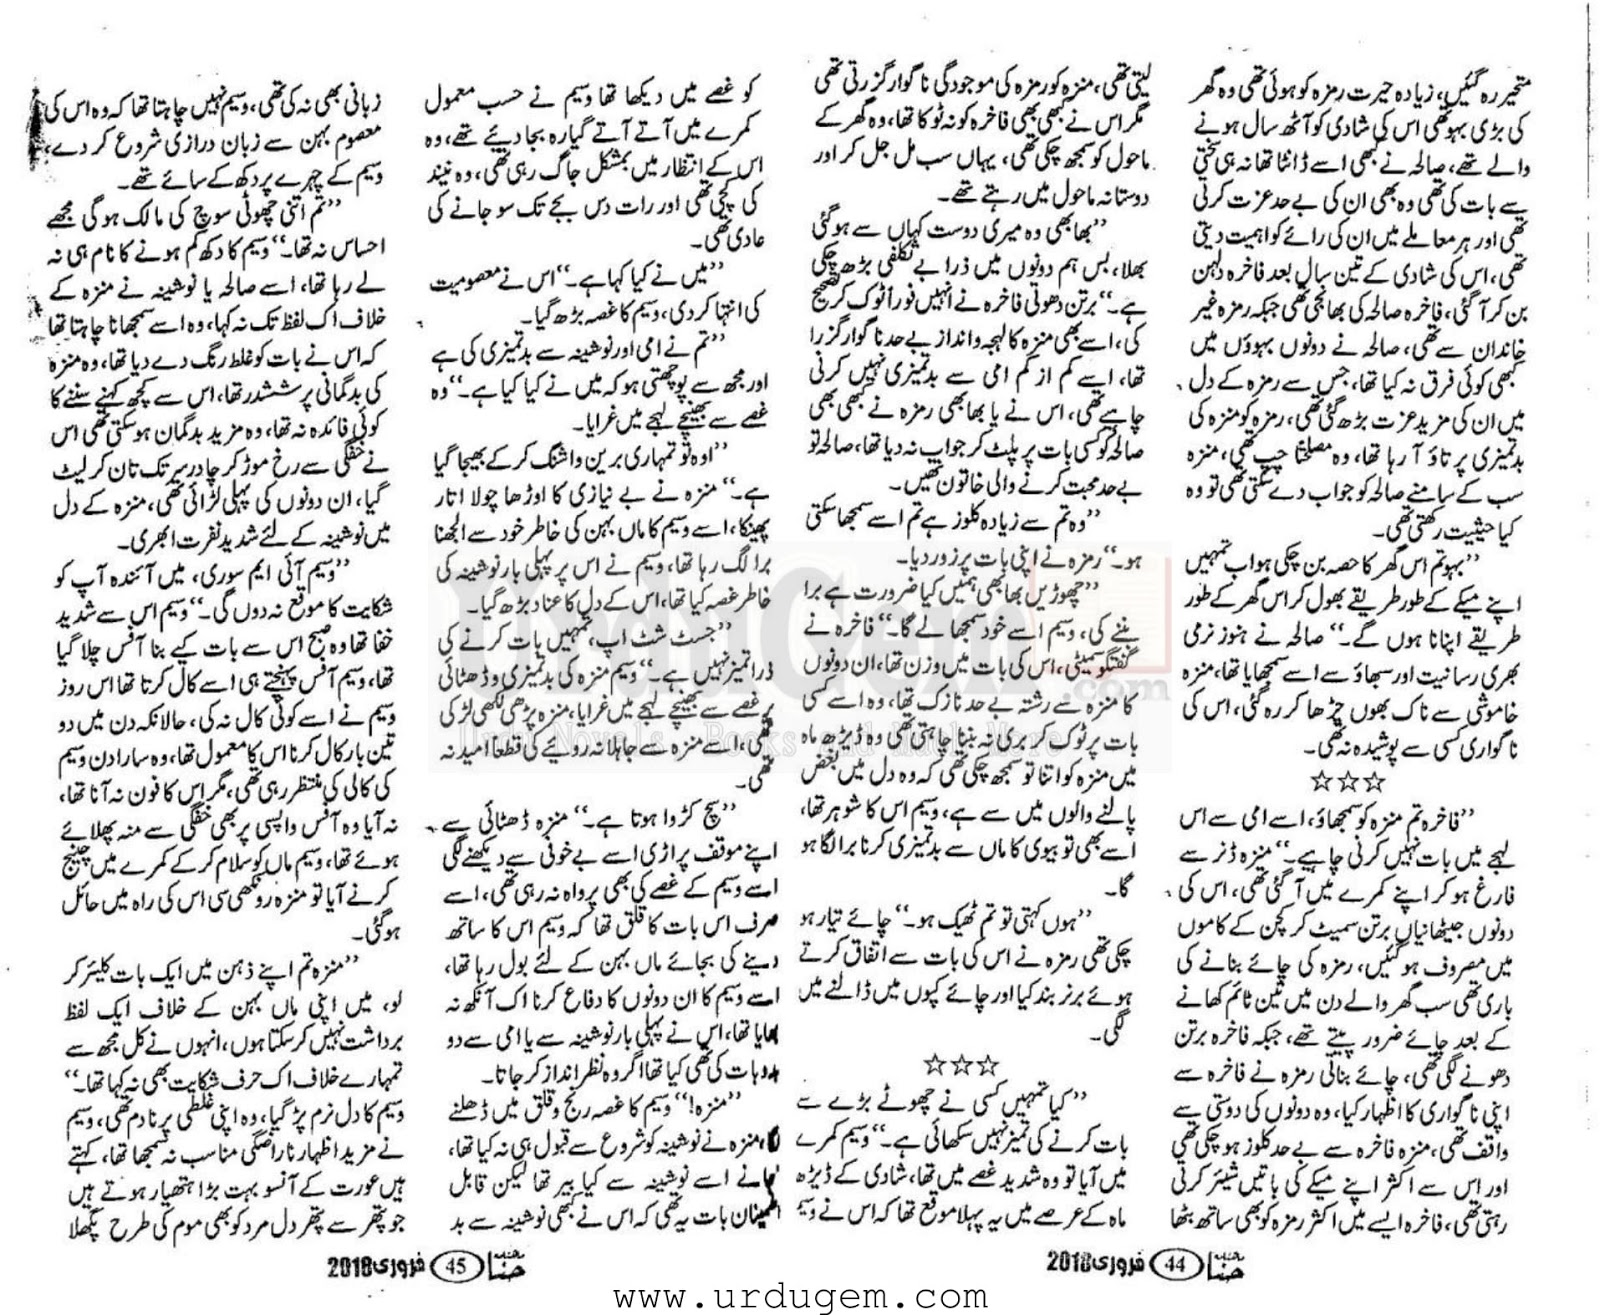 متحیر رہ گئیں، زیادہ حیرت رمزہ کو ہوئی تھی وہ گھر
کی بڑی بہو تھی اس کی شادی کو آٹھ سال ہونے
والے تھے، صالحہ نے کبھی اسے ڈانٹا تھا نہ ہی سختی
سے بات کی تھی وہ بھی ان کی بے حد عزت کرتی
تھی اور ہر معاملے میں ان کی رائے کو اہمیت دیتی
تھی، اس کی شادی کے تین سال بعد فاخرہ دلہن
بن کر آ گئی، فاخرہ صالحہ کی بھانجی تھی جبکہ رمزہ غیر
خاندان سے تھی، صالحہ نے دونوں بہوؤں میں
کبھی کوئی فرق نہ کیا تھا، جس سے رمزہ کے دل
میں ان کی مزید عزت بڑھ گئی تھی، رمزہ کو منزہ کی
بدتمیزی پر تاؤ آ رہا تھا، وہ مصلحتاً چپ تھی، منزہ
سب کے سامنے صالحہ کو جواب دے سکتی تھی تو وہ
کیا حیثیت رکھتی تھی۔
”بہو تم اس گھر کا حصہ بن چکی ہو اب تمہیں
اپنے میکے کے طور طریقے بھول کر اس گھر کے طور
طریقے اپنانا ہوں گے۔“ صالحہ نے ہنوز نرمی
بھری رسانیت اور سبھاؤ سے اسے سمجھایا تھا، منزہ
خاموشی سے ناک بھوں چڑھا کر رہ گئی، اس کی
ناگواری کسی سے پوشیدہ نہ تھی۔
☆☆☆
”فاخرہ تم منزہ کو سمجھاؤ، اسے امی سے اس
لہجے میں بات نہیں کرنی چاہیے۔“ منزہ ڈنر سے
فارغ ہو کر اپنے کمرے میں آ گئی تھی، اس کی
دونوں جیٹھانیاں برتن سمیٹ کر کچن کے کاموں
میں مصروف ہو گئیں، رمزہ کی چائے بنانے کی
باری تھی سب گھر والے دن میں تین ٹائم کھانے
کے بعد چائے ضرور پیتے تھے، جبکہ فاخرہ برتن
دھونے لگی تھی، چائے بناتی رمزہ نے فاخرہ سے
اپنی ناگواری کا اظہار کیا، وہ دونوں کی دوستی سے
واقف تھی، منزہ فاخرہ سے بے حد کلوز ہو چکی تھی
اور اس سے اکثر اپنے میکے کی باتیں شیئر کرتی
رہتی تھی، فاخرہ ایسے میں اکثر رمزہ کو بھی ساتھ بٹھا
لیتی تھی، منزہ کو رمزہ کی موجودگی ناگوار گزرتی تھی
مگر اس نے کبھی بھی فاخرہ کو نہ ٹوکا تھا، وہ گھر کے
ماحول کو سمجھ چکی تھی، یہاں سب مل جل کر اور
دوستانہ ماحول میں رہتے تھے۔
”بھابھی وہ میری دوست کہاں سے ہو گئی
بھلا، بس ہم دونوں میں ذرا بے تکلفی بڑھ چکی
ہے۔“ برتن دھوتی فاخرہ نے انہیں فوراً ٹوک کر تصحیح
کی، اسے بھی منزہ کا لہجہ و انداز بے حد ناگوار گزرا
تھا، اسے کم از کم امی سے بدتمیزی نہیں کرنی
چاہیے تھی، اس نے یا بھابھی رمزہ نے کبھی بھی
صالحہ کو کسی بات پر پلٹ کر جواب نہ دیا تھا، صالحہ تو
بے حد محبت کرنے والی خاتون تھیں۔
”وہ تم سے زیادہ کلوز ہے تم اسے سمجھا سکتی
ہو۔“ رمزہ نے اپنی بات پر زور دیا۔
”چھوڑیں بھابھی ہمیں کیا ضرورت ہے برا
بننے کی، وسیم اسے خود سمجھا لے گا۔“ فاخرہ نے
گفتگو سمیٹی، اس کی بات میں وزن تھا، ان دونوں
کا منزہ سے رشتہ بے حد نازک تھا، وہ اسے کسی
بات پر ٹوک کر بری نہ بننا چاہتی تھی وہ ڈیڑھ ماہ
میں منزہ کو اتنا تو سمجھ چکی تھی کہ وہ دل میں بغض
پالنے والوں میں سے ہے، وسیم اس کا شوہر تھا،
اسے بھی تو بیوی کا ماں سے بدتمیزی کرنا برا لگا ہو
گا۔
”ہوں کہتی تو تم ٹھیک ہو۔“ چائے تیار ہو
چکی تھی رمزہ نے اس کی بات سے اتفاق کرتے
ہوئے برنر بند کیا اور چائے کپوں میں ڈالنے میں
لگی۔
☆☆☆
”کیا تمہیں کسی نے چھوٹے بڑے سے
بات کرنے کی تمیز نہیں سکھائی ہے۔“ وسیم کمرے
میں آیا تو وہ شدید غصے میں تھا، شادی کے ڈیڑھ
ماہ کے عرصے میں یہ پہلا موقع تھا کہ اس نے وسیم
حنا 44 فروری 2018
کو غصے میں دیکھا تھا وسیم نے حسب معمول
کمرے میں آتے آتے گیارہ بجا دیئے تھے، وہ
اس کے انتظار میں بمشکل جاگ رہی تھی، وہ نیند
کی کچی تھی اور رات دس بجے تک سو جانے کی
عادی تھی۔
”میں نے کیا کہا ہے۔“ اس نے معصومیت
کی انتہا کر دی، وسیم کا غصہ بڑھ گیا۔
”تم نے امی اور نوشینہ سے بدتمیزی کی ہے
اور مجھ سے پوچھتی ہو کہ میں نے کیا کیا ہے۔“ وہ
غصے سے بھینچے لہجے میں غرایا۔
”اوہ تو تمہاری برین واشنگ کر کے بھیجا گیا
ہے۔“ منزہ نے بے نیازی کا اوڑھا چولا اتار
پھینکا، اسے وسیم کا ماں بہن کی خاطر خود سے الجھنا
برا لگ رہا تھا، وسیم نے اس پر پہلی بار نوشینہ کی
خاطر غصہ کیا تھا، اس کے دل کا عناد بڑھ گیا۔
”جسٹ شٹ اپ، تمہیں بات کرنے کی
ذرا تمیز نہیں ہے۔“ وسیم منزہ کی بدتمیزی و ڈھٹائی
پر غصے سے بھینچے لہجے میں غرایا، منزہ پڑھی لکھی لڑکی
تھی، اسے منزہ سے جاہلانہ رویئے کی قطعاً امید نہ
تھی۔
”سچ کڑوا ہوتا ہے۔“ منزہ ڈھٹائی سے
اپنے موقف پر اڑی اسے بے خوفی سے دیکھنے لگی
اسے وسیم کے غصے کی بھی پرواہ نہ رہی تھی، اسے
صرف اس بات کا قلق تھا کہ وسیم اس کا ساتھ
دینے کی بجائے ماں بہن کے لئے بول رہا تھا،
اسے وسیم کا ان دونوں کا دفاع کرنا اک آنکھ نہ
بھایا تھا، اس نے پہلی بار نوشینہ سے یا امی سے دو
بدو بات کی تھی کیا تھا اگر وہ نظر انداز کر جاتا۔
”منزہ!“ وسیم کا غصہ رنج و قلق میں ڈھلنے
لگا، منزہ نے نوشینہ کو شروع سے قبول ہی نہ کیا تھا،
جانے اسے نوشینہ سے کیا بیر تھا لیکن قابل
اطمینان بات یہ تھی کہ اس نے کبھی نوشینہ سے بد
زبانی بھی نہ کی تھی، وسیم نہیں چاہتا تھا کہ وہ اس کی
معصوم بہن سے زبان درازی شروع کر دے،
وسیم کے چہرے پر دکھ کے سائے تھے۔
”تم اتنی چھوٹی سوچ کی مالک ہو گی مجھے
احساس نہ تھا۔“ وسیم کا دکھ کم ہونے کا نام ہی نہ
لے رہا تھا، اسے صالحہ یا نوشینہ نے منزہ کے
خلاف اک لفظ تک نہ کہا، وہ اسے سمجھانا چاہتا تھا
کہ اس نے بات کو غلط رنگ دے دیا تھا، وہ منزہ
کی بدگمانی پر ششدر تھا، اس سے کچھ کہنے سننے کا
کوئی فائدہ نہ تھا، وہ مزید بدگمان ہو سکتی تھی اس
نے خفگی سے رخ موڑ کر چادر سر تک تان کر لیٹ
گیا، ان دونوں کی پہلی لڑائی تھی، منزہ کے دل
میں نوشینہ کے لئے شدید نفرت ابھری۔
”وسیم آئی ایم سوری، میں آئندہ آپ کو
شکایت کا موقع نہ دوں گی۔“ وسیم اس سے شدید
خفا تھا وہ صبح اس سے بات کیے بنا آفس چلا گیا
تھا، وسیم آفس پہنچتے ہی اسے کال کرتا تھا اس روز
وسیم نے اسے کوئی کال نہ کی، حالانکہ دن میں دو
تین بار کال کرنا اس کا معمول تھا، وہ سارا دن وسیم
کی کال کی منتظر رہی تھی، مگر اس کا فون نہ آنا تھا،
نہ آیا وہ آفس واپسی پر بھی خفگی سے منہ پھلائے
ہوئے تھا، وسیم ماں کو سلام کر کے کمرے میں چینج
کرنے آیا تو منزہ روٹھی سی اس کی راہ میں حائل
ہو گئی۔
”منزہ تم اپنے ذہن میں ایک بات کلیئر کر
لو، میں اپنی ماں بہن کے خلاف ایک لفظ
برداشت نہیں کر سکتا ہوں، انہوں نے کل مجھ سے
تمہارے خلاف اک حرف شکایت بھی نہ کہا تھا۔“
وسیم کا دل نرم پڑ گیا، وہ اپنی غلطی پر نادم تھی، وسیم
نے مزید اظہار ناراضگی مناسب نہ سمجھا تھا، کہتے
ہیں عورت کے آنسو بہت بڑا ہتھیار ہوتے ہیں
جو پتھر سے پتھر دل مرد کو بھی موم کی طرح پگھلا
حنا 45 فروری 2018
UrduGem.com
Urdu Novels, Books and Much More
www.urdugem.com